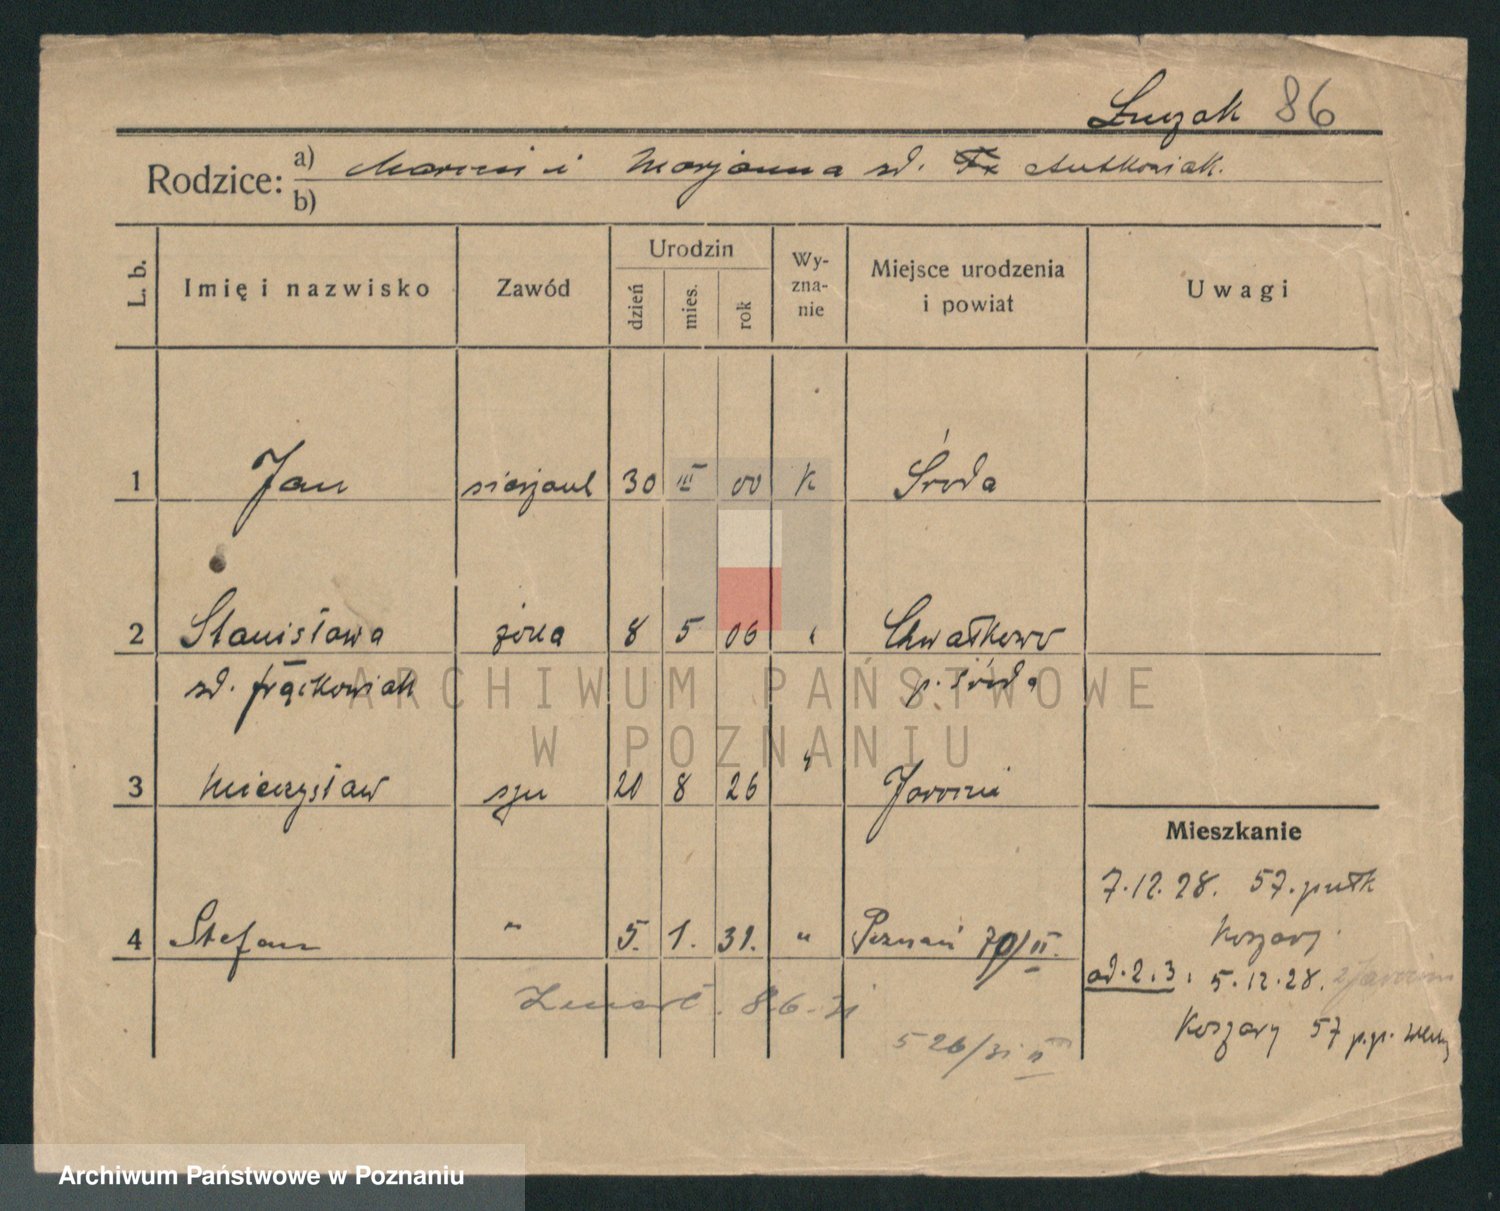 Łuczak 86
Rodzice: a) Marcin i Marjanna zd. Antkowiak.
b)
L. b. Imię i nazwisko Zawód Urodzin dzień mies. rok Wy-zna-nie Miejsce urodzenia i powiat Uwagi
1 Jan sierżant 30 III 00 K Środa
2 Stanisława żona 8 5 06 " Chwałkowo
zd. Frąckowiak p. Środa
3 Mieczysław syn 20 8 26 " Jarocin
Mieszkanie
7.12.28. 57. pułk
Koszary
4 Stefan " 5. 1. 31. " Poznań 70/II.
od. 2.3. 5.12.28. z Jarocin
Zmarł. 8.6.31
Koszary 57 p.p.
526/31 II
ARCHIWUM PAŃSTWOWE
W POZNANIU
Archiwum Państwowe w Poznaniu